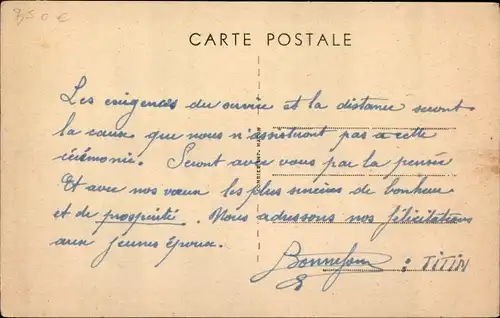 7,50 €
CARTE POSTALE
Les exigences du service et la distance seront
la cause que nous n'assistront pas a cette
cérémonie. Seront avec vous par la pensée
Et avec nos vœux les plus sincères de bonheur
et de prospérité. Nous adressons nos félicitations
aux jeunes époux.
Bonnefous : TITIN